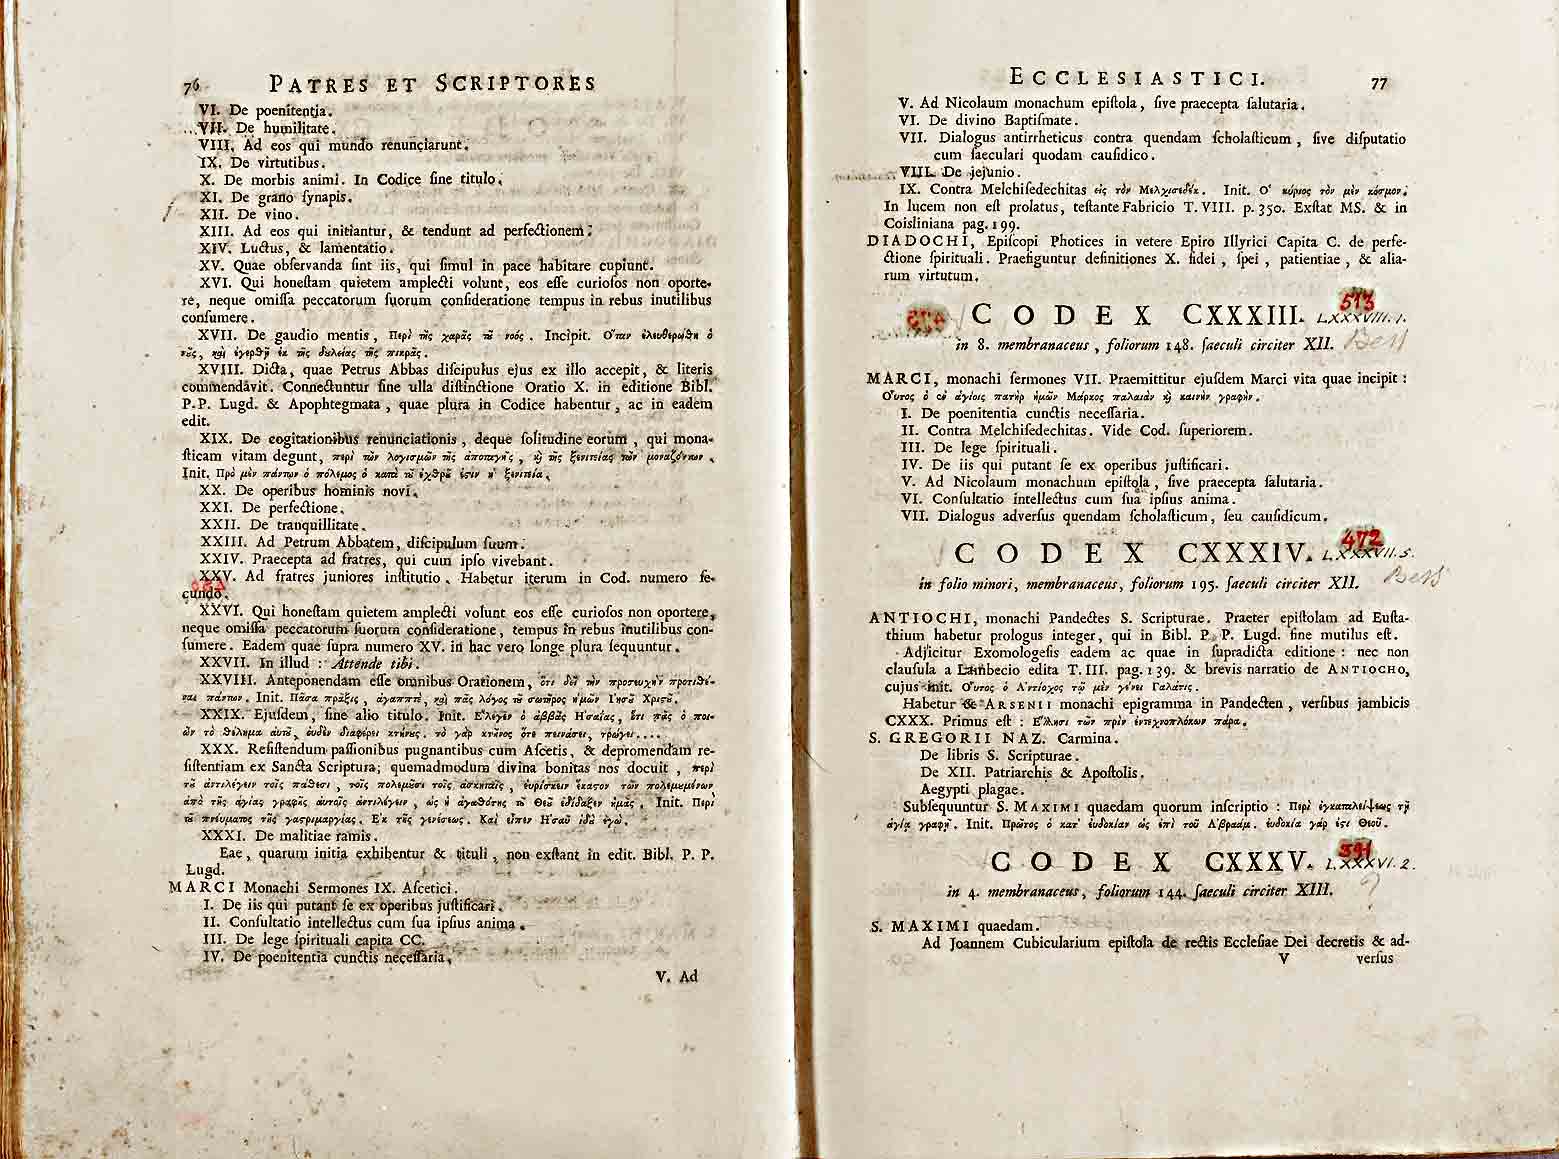 76 PATRES ET SCRIPTORES
VI. De poenitentia.
VII. De humilitate.
VIII. Ad eos qui mundo renunciarunt.
IX. De virtutibus.
X. De morbis animi. In Codice ſine titulo.
XI. De grano ſynapis.
XII. De vino.
XIII. Ad eos qui initiantur, & tendunt ad perfectionem.
XIV. Luctus, & lamentatio.
XV. Quae obſervanda ſint iis, qui ſimul in pace habitare cupiunt.
XVI. Qui honeſtam quietem amplecti volunt, eos eſſe curioſos non oporte-
re, neque omiſſa peccatorum ſuorum conſideratione tempus in rebus inutilibus
conſumere.
XVII. De gaudio mentis, Περὶ τῆς χαρᾶς τοῦ νοός. Incipit. Ὅταν ἐλευθερωθῇ ὁ
νοῦς, καὶ ἐγερθῇ ἐκ τῆς δουλείας τῆς πικρᾶς.
XVIII. Dicta, quae Petrus Abbas diſcipulus ejus ex illo accepit, & literis
commendavit. Connectuntur ſine ulla diſtinctione Oratio X. in editione Bibl.
P.P. Lugd. & Apophtegmata, quae plura in Codice habentur, ac in eadem
edit.
XIX. De cogitationibus renunciationis, deque ſolitudine eorum, qui mona-
ſticam vitam degunt, περὶ τῶν λογισμῶν τῆς ἀποταγῆς, καὶ τῆς ξενιτείας τῶν μοναζόντων.
Init. Πρὸ μὲν πάντων ὁ πόλεμος ὁ κατὰ τοῦ ἐχθροῦ ἐστιν ἡ ξενιτεία.
XX. De operibus hominis novi.
XXI. De perfectione.
XXII. De tranquillitate.
XXIII. Ad Petrum Abbatem, diſcipulum ſuum.
XXIV. Praecepta ad fratres, qui cum ipſo vivebant.
XXV. Ad fratres juniores inſtitutio. Habetur iterum in Cod. numero ſe-
cundo.
XXVI. Qui honeſtam quietem amplecti volunt eos eſſe curioſos non oportere,
neque omiſſa peccatorum ſuorum conſideratione, tempus in rebus inutilibus con-
ſumere. Eadem quae ſupra numero XV. in hac vero longe plura ſequuntur.
XXVII. In illud : Attende tibi.
XXVIII. Anteponendam eſſe omnibus Orationem, ὅτι δεῖ τὴν προσευχὴν προτιθέ-
ναι πάντων. Init. Πᾶσα πράξις, ἀγαπητέ, καὶ πᾶς λόγος τοῦ σωτῆρος ἡμῶν Ἰησοῦ Χριστοῦ.
XXIX. Ejuſdem, ſine alio titulo. Init. Ἔλεγεν ὁ ἀββᾶς Ἡσαΐας, ὅτι πᾶς ὁ ποι-
ῶν τὸ θέλημα αὐτοῦ, οὐδὲν διαφέρει κτήνους. τὸ γὰρ κτῆνος ὅτε πεινάσει, τρώγει....
XXX. Reſiſtendum paſſionibus pugnantibus cum Aſcetis, & depromendam re-
ſiſtentiam ex Sancta Scriptura; quemadmodum divina bonitas nos docuit, περὶ
τοῦ ἀντιλέγειν τοῖς πάθεσι, τοῖς πολεμοῦσι τοῖς ἀσκηταῖς, εὑρίσκειν ἕκαστον τῶν πολεμουμένων
ἀπὸ τῆς ἁγίας γραφῆς αὐτοῖς ἀντιλέγειν, ὡς ἡ ἀγαθότης τοῦ Θεοῦ ἐδίδαξεν ἡμᾶς. Init. Περὶ
τοῦ πνεύματος τῆς γαστριμαργίας. Ἐκ τῆς γενέσεως. Καὶ εἶπεν Ἡσαῦ ἰδοὺ ἐγώ.
XXXI. De malitiae ramis.
Eae, quarum initia exhibentur & tituli, non exſtant in edit. Bibl. P. P.
Lugd.
MARCI Monachi Sermones IX. Aſcetici.
I. De iis qui putant ſe ex operibus juſtificari.
II. Conſultatio intellectus cum ſua ipſius anima.
III. De lege ſpirituali capita CC.
IV. De poenitentia cunctis neceſſaria.
V. Ad
ECCLESIASTICI. 77
V. Ad Nicolaum monachum epiſtola, ſive praecepta ſalutaria.
VI. De divino Baptiſmate.
VII. Dialogus antirrheticus contra quendam ſcholaſticum, ſive diſputatio
cum ſaeculari quodam cauſidico.
VIII. De jejunio.
IX. Contra Melchiſedechitas εἰς τὸν Μελχισεδέκ. Init. Ὁ κύριος τὸν μὲν κόσμον.
In lucem non eſt prolatus, teſtante Fabricio T. VIII. p. 350. Exſtat MS. & in
Coisliniana pag. 199.
DIADOCHI, Epiſcopi Photices in vetere Epiro Illyrici Capita C. de perfe-
ctione ſpirituali. Praefiguntur definitiones X. fidei, ſpei, patientiae, & alia-
rum virtutum.
513
CODEX CXXXIII. LXXXVIII. 1.
in 8. membranaceus, foliorum 148. ſaeculi circiter XII. Bess
MARCI, monachi ſermones VII. Praemittitur ejuſdem Marci vita quae incipit :
Οὗτος ὁ ἐν ἁγίοις πατὴρ ἡμῶν Μάρκος παλαιὰν καὶ καινὴν γραφήν.
I. De poenitentia cunctis neceſſaria.
II. Contra Melchiſedechitas. Vide Cod. ſuperiorem.
III. De lege ſpirituali.
IV. De iis qui putant ſe ex operibus juſtificari.
V. Ad Nicolaum monachum epiſtola, ſive praecepta ſalutaria.
VI. Conſultatio intellectus cum ſua ipſius anima.
VII. Dialogus adverſus quendam ſcholaſticum, ſeu cauſidicum.
472
CODEX CXXXIV. LXXXVII. 5.
in folio minori, membranaceus, foliorum 195. ſaeculi circiter XII. Bess
ANTIOCHI, monachi Pandectes S. Scripturae. Praeter epiſtolam ad Euſta-
thium habetur prologus integer, qui in Bibl. P. P. Lugd. ſine mutilus eſt.
Adjicitur Exomologeſis eadem ac quae in ſupradicta editione : nec non
clauſula a Lambecio edita T. III. pag. 139. & brevis narratio de ANTIOCHO,
cujus init. Οὗτος ὁ Ἀντίοχος τῷ μὲν γένει Γαλάτις.
Habetur & ARSENII monachi epigramma in Pandecten, verſibus jambicis
CXXX. Primus eſt : Ἕλκησι τῶν πρὶν ἐντεχνοπλόκων πάρα.
S. GREGORII NAZ. Carmina.
De libris S. Scripturae.
De XII. Patriarchis & Apoſtolis.
Aegypti plagae.
Subſequuntur S. MAXIMI quaedam quorum inſcriptio : Περὶ ἐγκαταλείψεως τῇ
ἁγίᾳ γραφῇ. Init. Πρῶτος ὁ κατ' εὐδοκίαν ὡς ἐπὶ τοῦ Ἀβραάμ. εὐδοκία γάρ ἐστι Θεοῦ.
391
CODEX CXXXV. LXXXVI. 2.
in 4. membranaceus, foliorum 144. ſaeculi circiter XIII.
S. MAXIMI quaedam.
Ad Joannem Cubicularium epiſtola de rectis Eccleſiae Dei decretis & ad-
V verſus